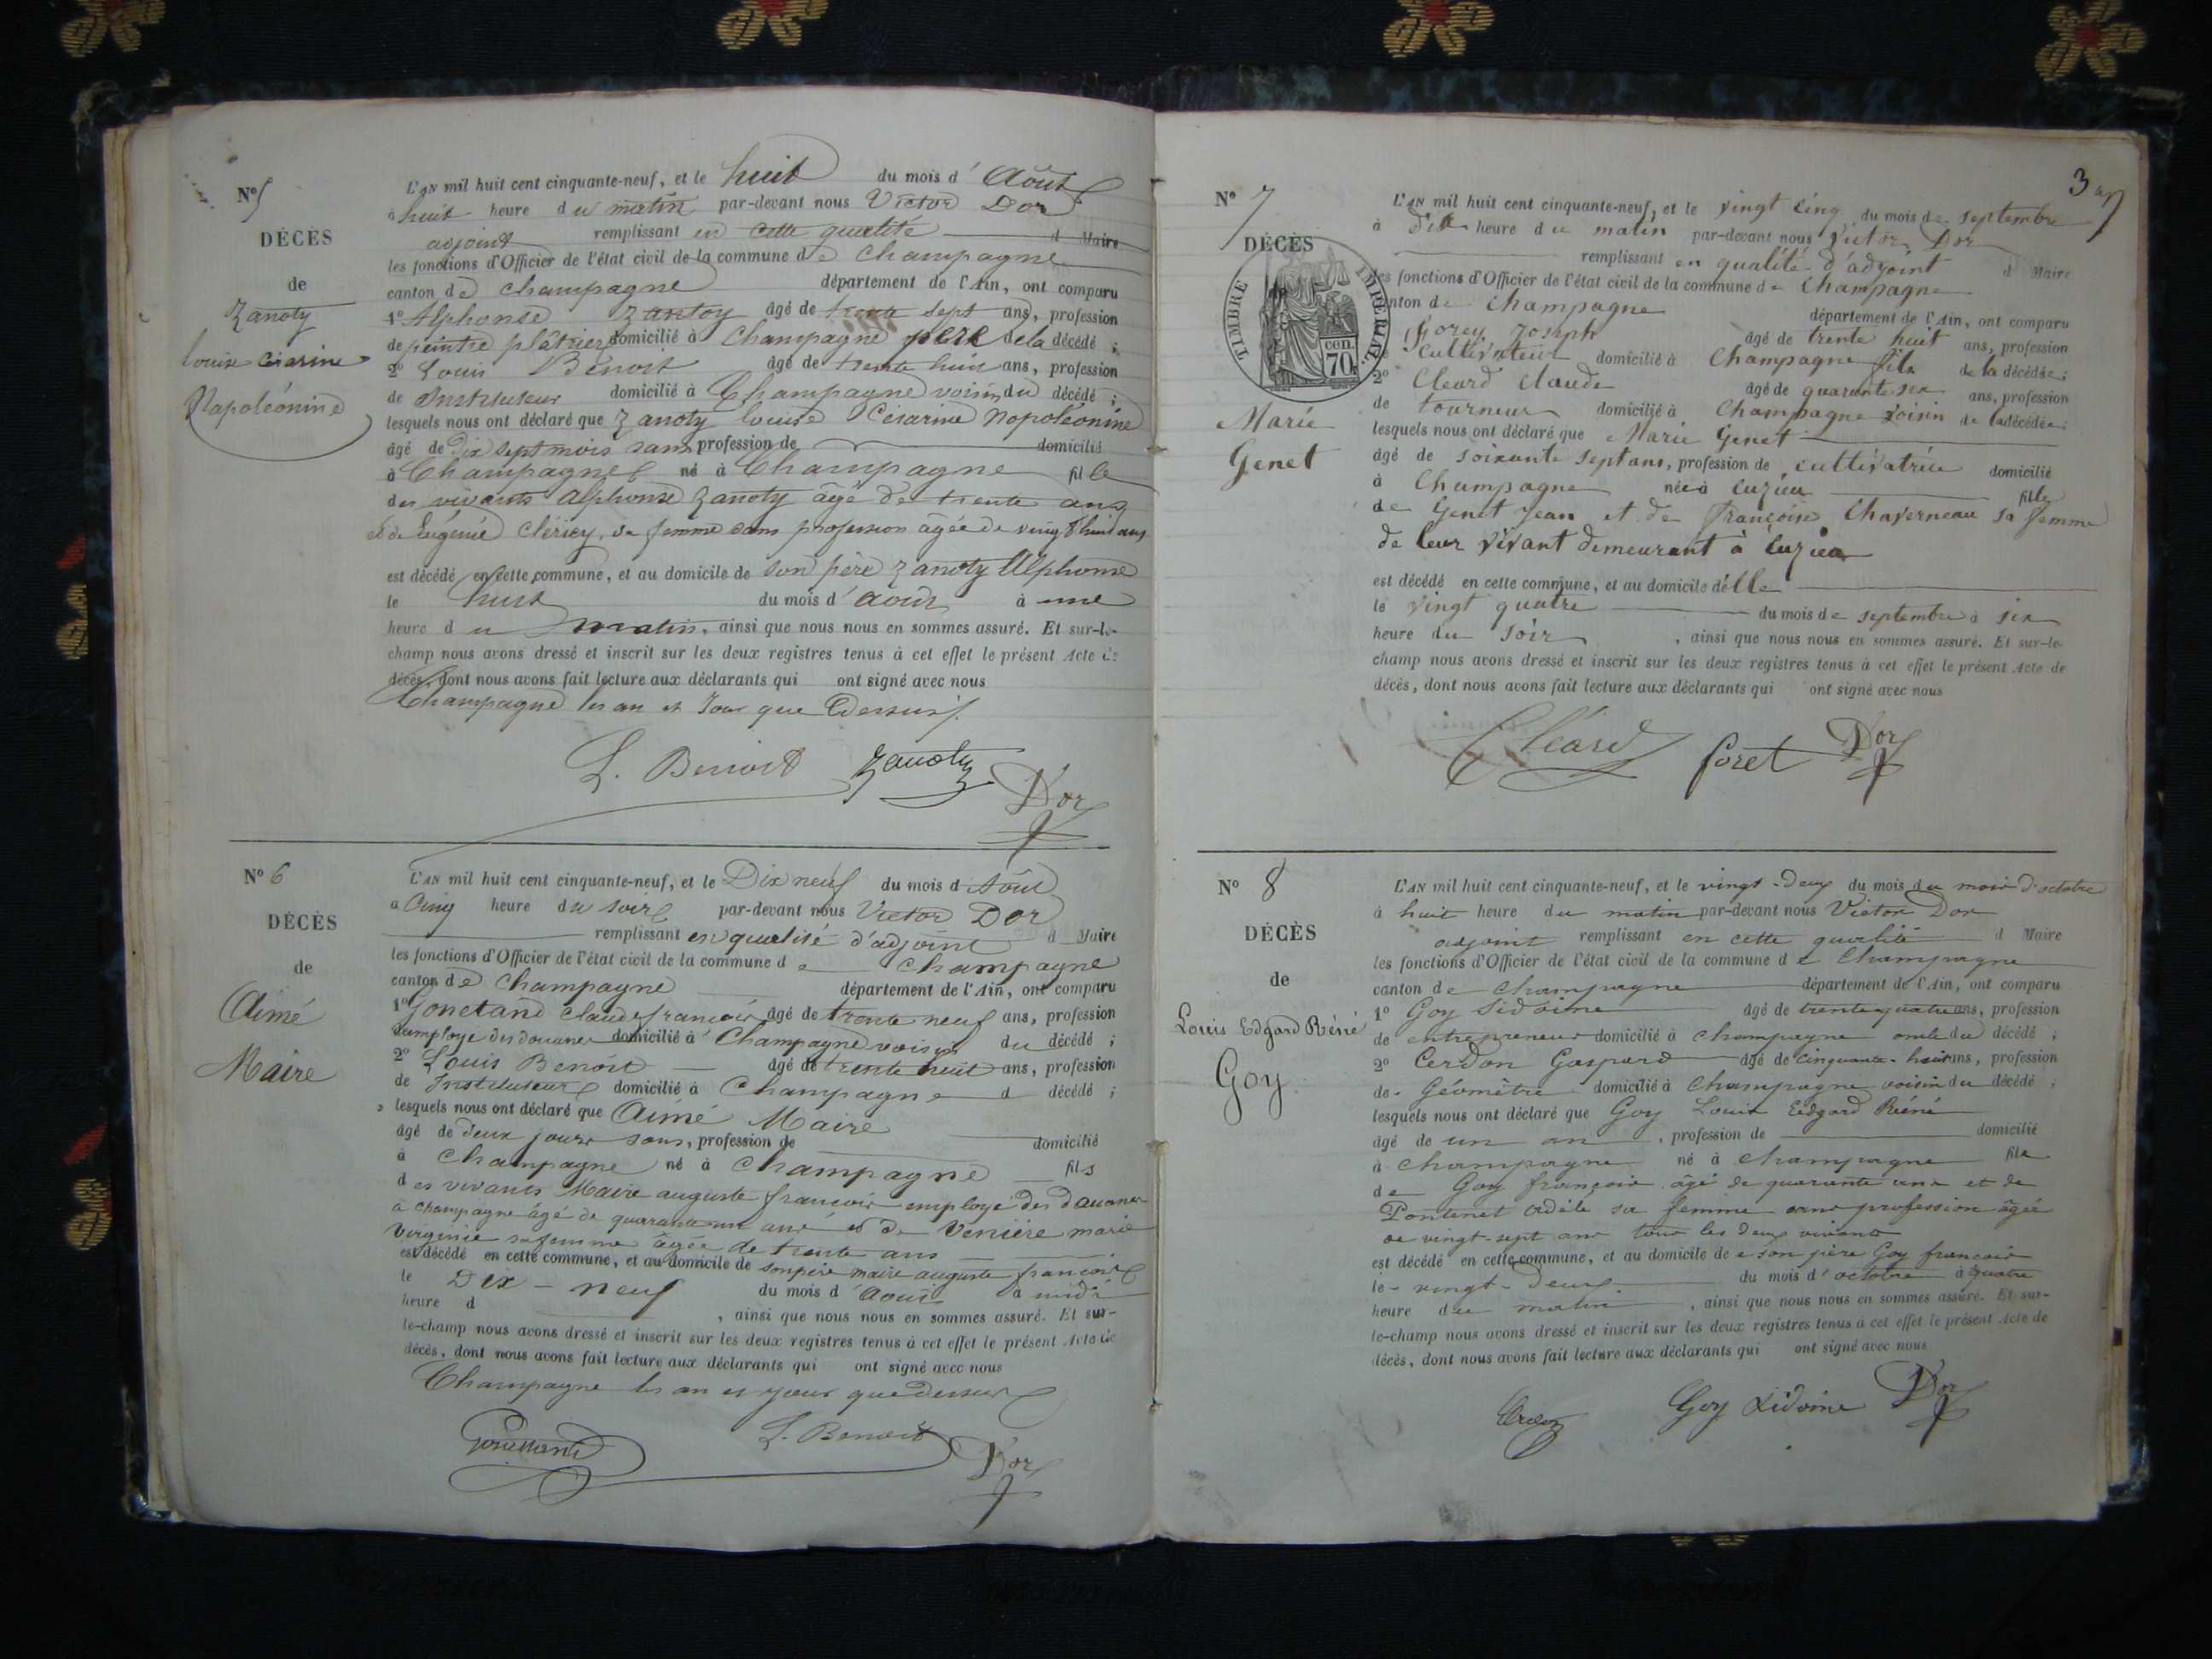 N° 5
DÉCÈS
de
Zanoty
Louise Césarine
Napoléonine
L'AN mil huit cent cinquante-neuf, et le huit du mois d'Août
à huit heure du matin par-devant nous Victor Dor
adjoint remplissant en cette qualité d Maire
les fonctions d'Officier de l'état civil de la commune de Champagne
canton de Champagne département de l'Ain, ont comparu
1° Alphonse Zanoty âgé de trente sept ans, profession
de peintre plâtrier domicilié à Champagne père de la décédé ;
2° Louis Benoit âgé de trente huit ans, profession
de Instituteur domicilié à Champagne voisin du décédé ;
lesquels nous ont déclaré que Zanoty Louise Césarine Napoléonine
âgé de dix sept mois sans profession de domicilié
à Champagne né à Champagne fille
des vivants Alphonse Zanoty âgé de trente ans
et de Eugénie Cléricy, sa femme sans profession âgée de vingt huit ans
est décédé en cette commune, et au domicile de son père Zanoty Alphonse
le huit du mois d'août à une
heure du matin, ainsi que nous nous en sommes assuré. Et sur-le-
champ nous avons dressé et inscrit sur les deux registres tenus à cet effet le présent Acte de
décès, dont nous avons fait lecture aux déclarants qui ont signé avec nous
Champagne les an et Jour que Dessus
L. Benoit Zanoty Dor
N° 6
DÉCÈS
de
Aimé
Maire
L'AN mil huit cent cinquante-neuf, et le Dix neuf du mois d Août
à Cinq heure du soir par-devant nous Victor Dor
remplissant en qualité d'adjoint d Maire
les fonctions d'Officier de l'état civil de la commune de Champagne
canton de Champagne département de l'Ain, ont comparu
1° Gonetand Claude francois âgé de trente neuf ans, profession
d'employe des douanes domicilié à Champagne voisin du décédé ;
2° Louis Benoit âgé de trente huit ans, profession
de Instituteur domicilié à Champagne d décédé ;
lesquels nous ont déclaré que Aimé Maire
âgé de deux jours sans, profession de domicilié
à Champagne né à Champagne fils
des vivants Maire auguste francois employé des douanes
a Champagne âgé de quarante un ans et de Venière marie
virginie sa femme âgée de trente ans
est décédé en cette commune, et au domicile de son père maire auguste francois
le Dix - neuf du mois d'Aout à midi
heure d , ainsi que nous nous en sommes assuré. Et sur-
le-champ nous avons dressé et inscrit sur les deux registres tenus à cet effet le présent Acte de
décès, dont nous avons fait lecture aux déclarants qui ont signé avec nous
Champagne les an et jour que dessus
Gonettand L. Benoit Dor
3
N° 7
DÉCÈS
de
TIMBRE IMPERIAL
70 cen.
Marie
Genet
L'AN mil huit cent cinquante-neuf, et le vingt cinq du mois de septembre
à dix heure du matin par-devant nous Victor Dor
remplissant en qualité d'adjoint d Maire
les fonctions d'Officier de l'état civil de la commune de Champagne
canton de Champagne département de l'Ain, ont comparu
Gorey Joseph âgé de trente huit ans, profession
cultivateur domicilié à Champagne fils de la décédée ;
2° Cleard Claude âgé de quarante six ans, profession
de tourneur domicilié à Champagne voisin de la décédée ;
lesquels nous ont déclaré que Marie Genet
âgé de soixante sept ans, profession de cultivatrice domicilié
à Champagne née à Cuzieu fille
de Genet Jean et de Françoise Chaverneau sa femme
de leur vivant demeurant à Cuzieu
est décédé en cette commune, et au domicile d'elle
le vingt quatre du mois de septembre à six
heure du soir, ainsi que nous nous en sommes assuré. Et sur-le-
champ nous avons dressé et inscrit sur les deux registres tenus à cet effet le présent Acte de
décès, dont nous avons fait lecture aux déclarants qui ont signé avec nous
Cléard Goret Dor
N° 8
DÉCÈS
de
Louis Edgard Réné
Goy
L'AN mil huit cent cinquante-neuf, et le vingt-deux du mois du mois d'octobre
à huit heure du matin par-devant nous Victor Dor
adjoint remplissant en cette qualité d Maire
les fonctions d'Officier de l'état civil de la commune de Champagne
canton de Champagne département de l'Ain, ont comparu
1° Goy Sidoine âgé de trente quatre ans, profession
de entrepreneur domicilié à Champagne oncle du décédé ;
2° Cerdon Gaspard âgé de cinquante-huit ans, profession
de Géomètre domicilié à Champagne voisin du décédé ;
lesquels nous ont déclaré que Goy Louis Edgard Réné
âgé de un an, profession de domicilié
à Champagne né à Champagne fils
de Goy françois âgé de quarante ans et de
Pontenet Adèle sa femme sans profession âgée
de vingt-sept ans tous les deux vivants
est décédé en cette commune, et au domicile de son père Goy francois
le vingt-deux du mois d'octobre à quatre
heure du matin, ainsi que nous nous en sommes assuré. Et sur-
le-champ nous avons dressé et inscrit sur les deux registres tenus à cet effet le présent Acte de
décès, dont nous avons fait lecture aux déclarants qui ont signé avec nous
Goy Sidoine Dor